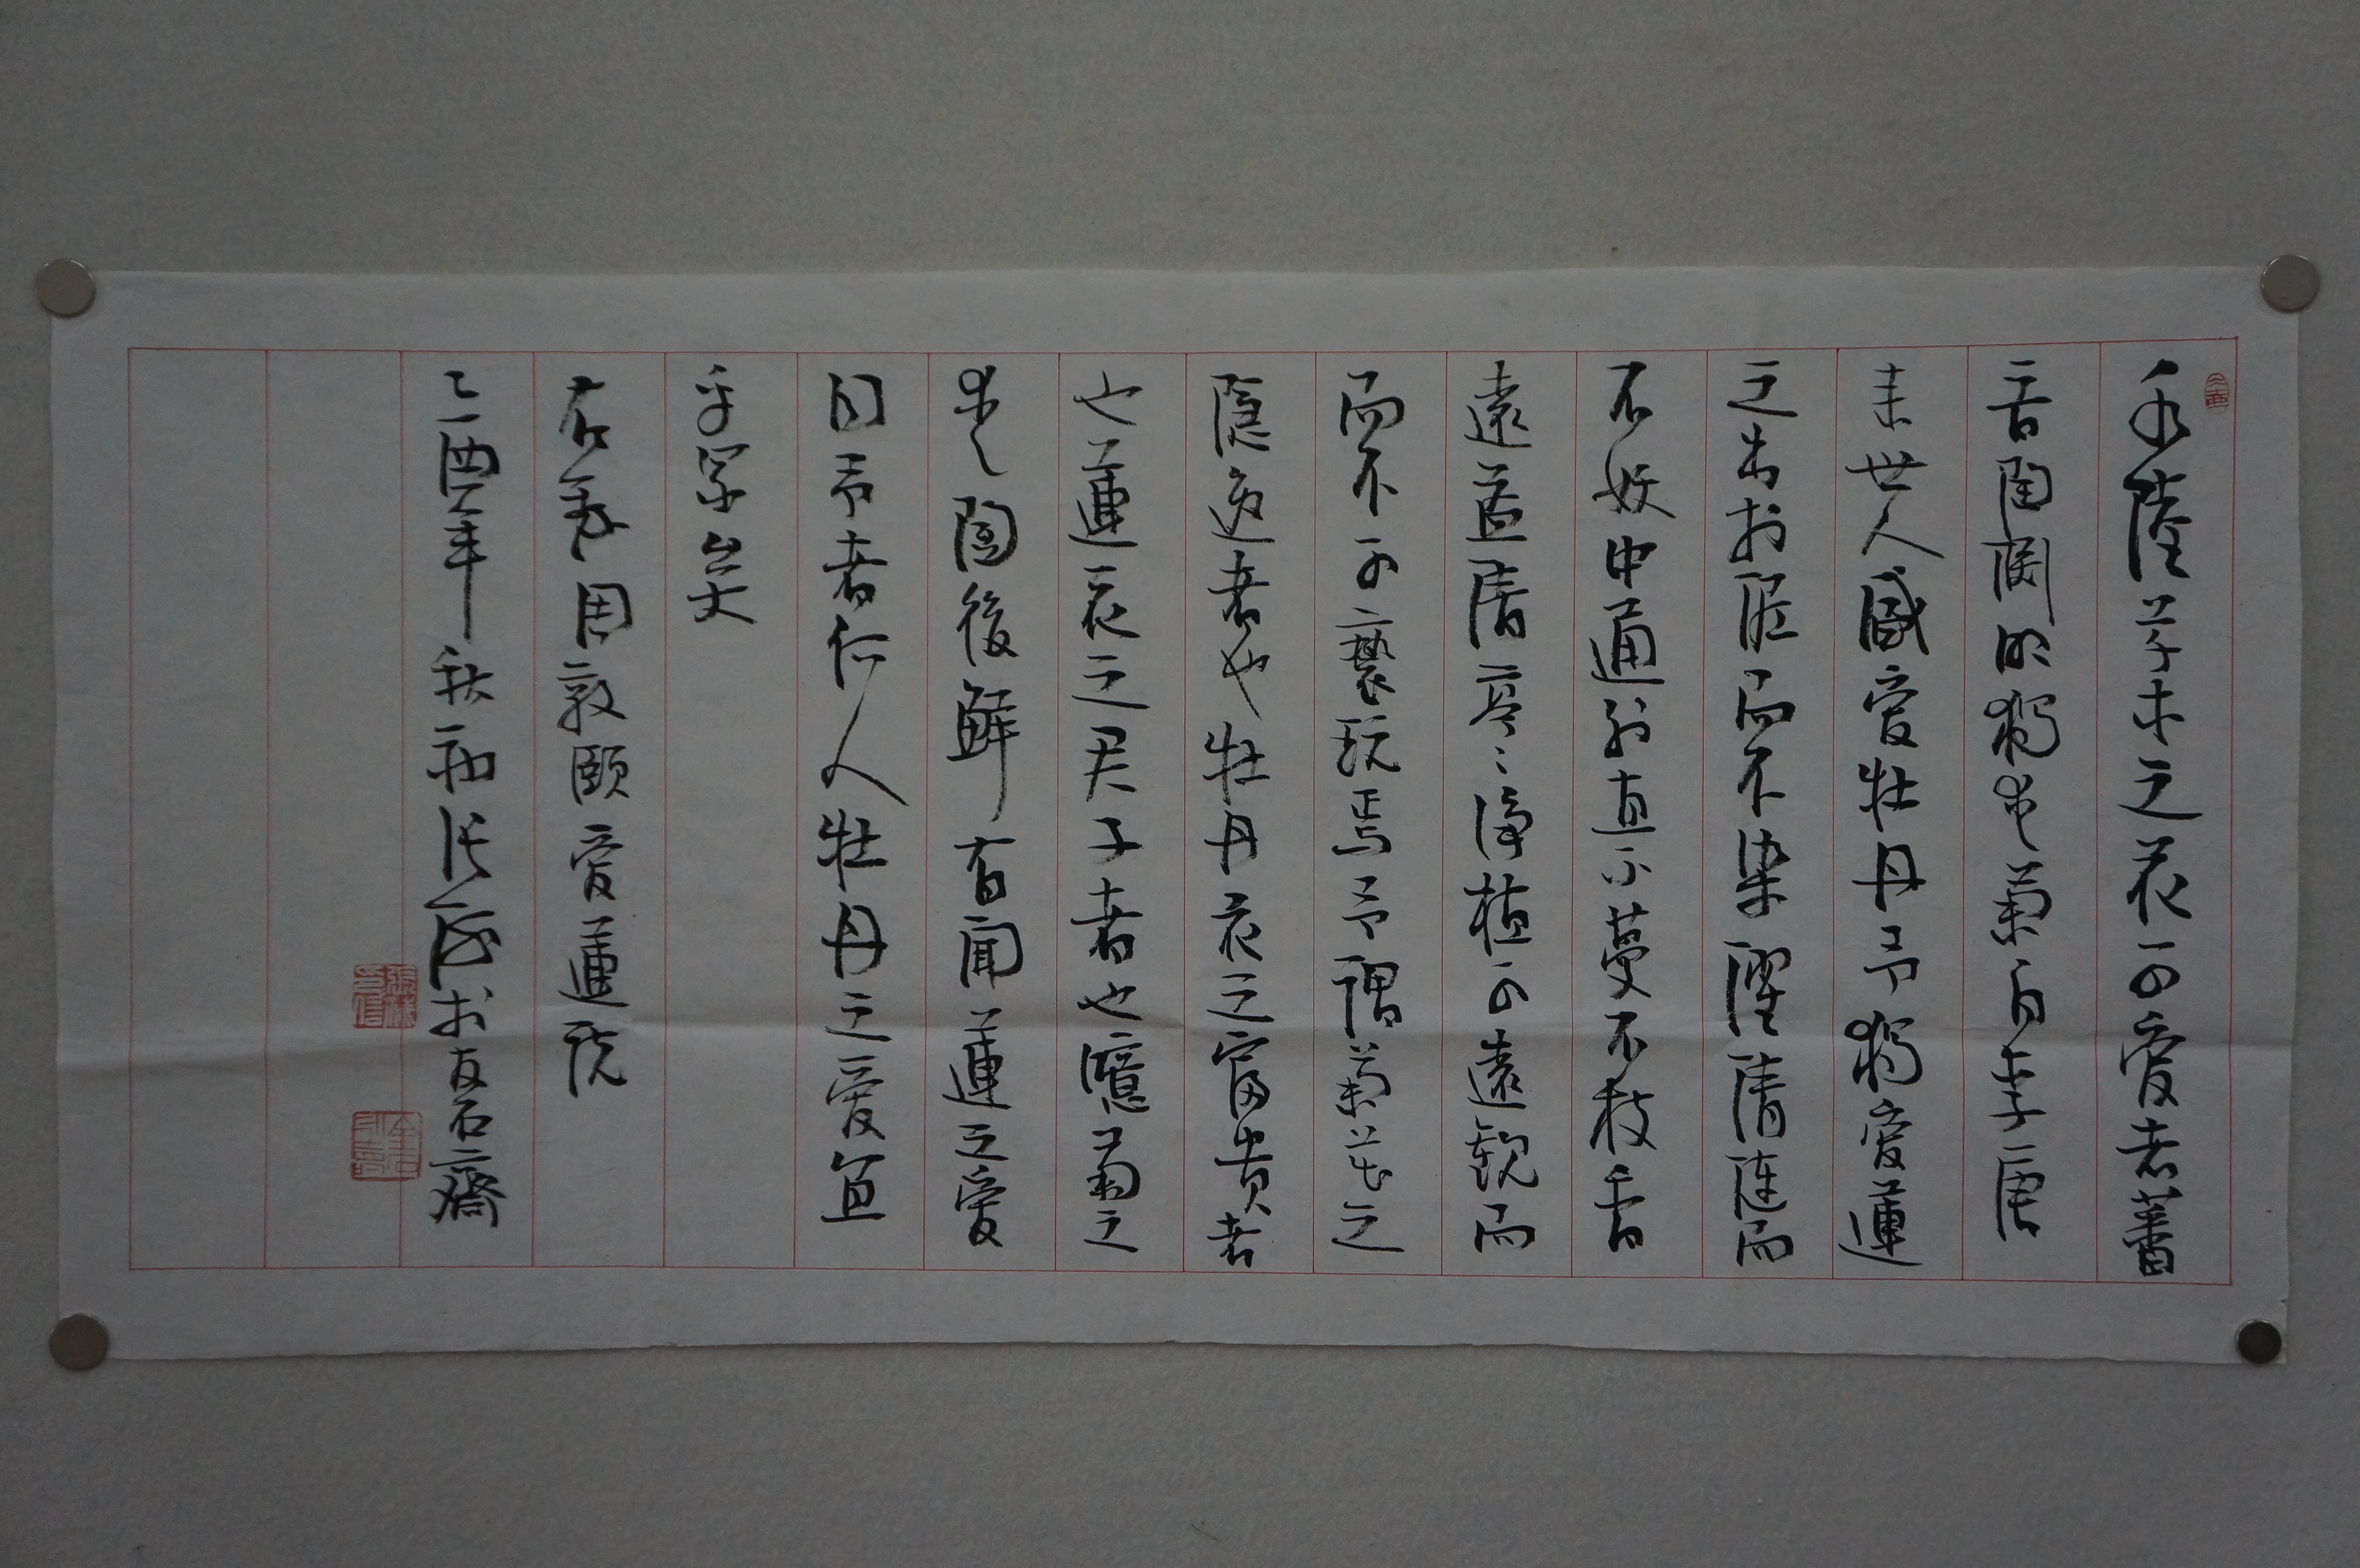 水陸草木之花可愛者蕃
晉陶淵明獨愛菊自李唐
來世人盛愛牡丹予獨愛蓮
之出於泥而不染濯清漣而
不妖中通外直不蔓不枝香
遠益清亭々淨植可遠觀而
而不可褻玩焉予謂菊花之
隱逸者也牡丹花之富貴者
也蓮花之君子者也噫菊之
愛陶後鮮有聞蓮之愛
同予者何人牡丹之愛宜
乎眾矣
右周敦頤愛蓮說
乙酉年秋初張於友石齋